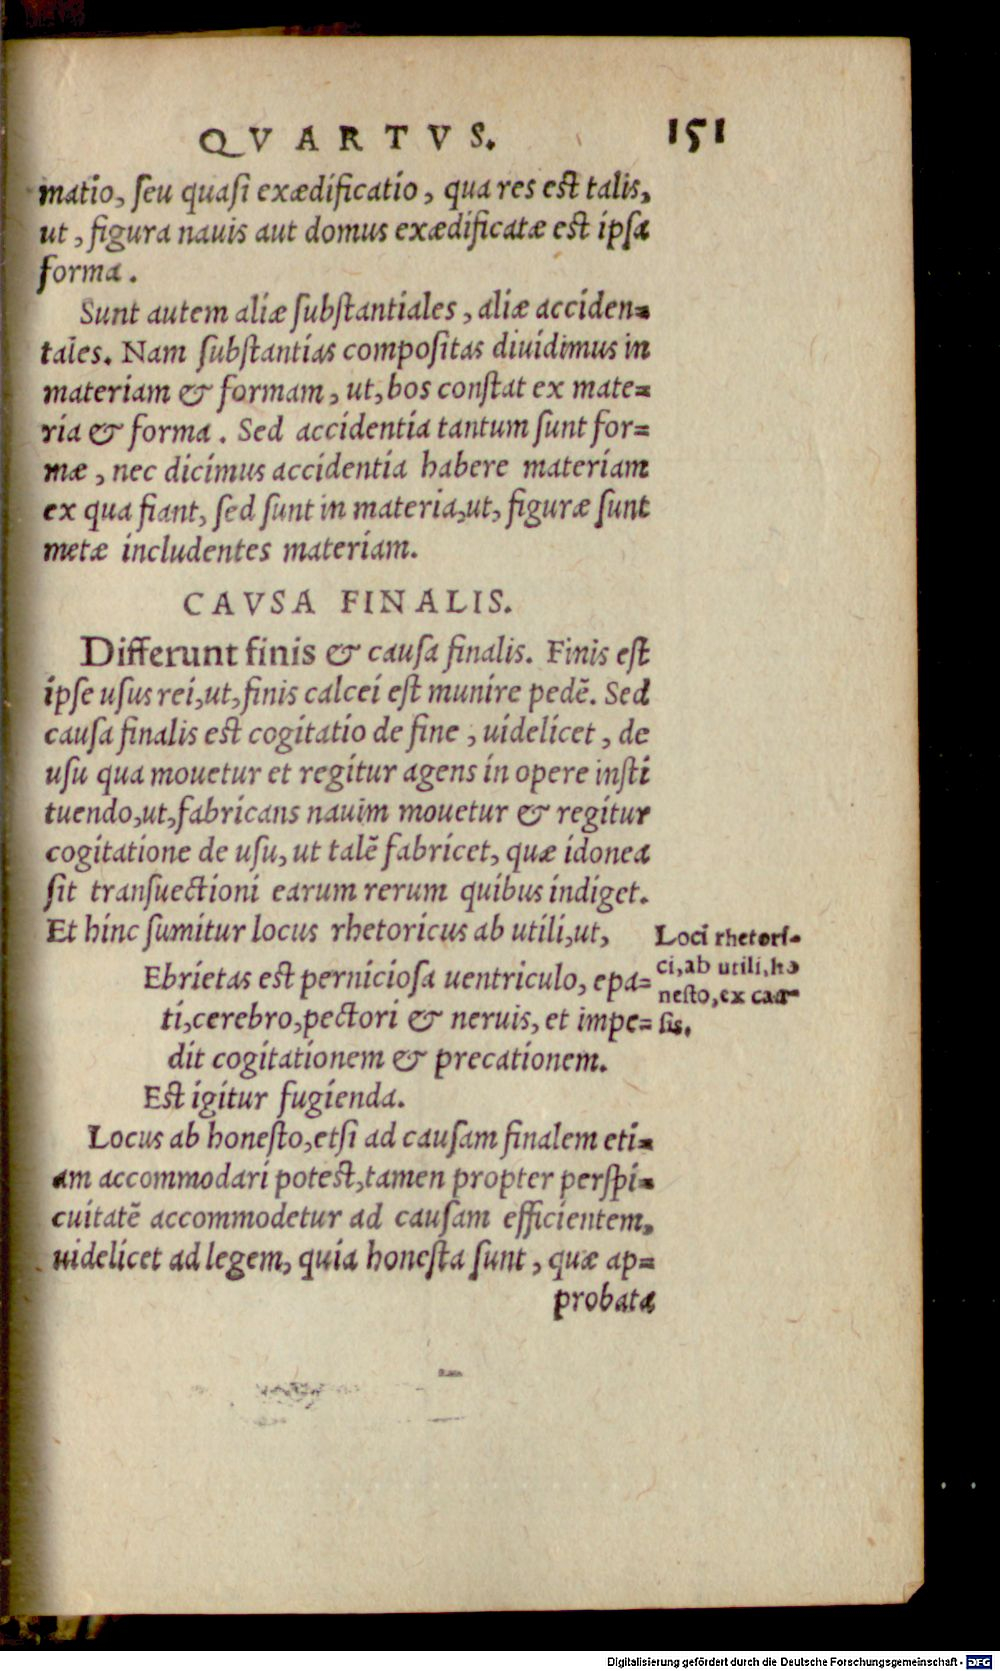 QVARTVS. 151
matio, ſeu quaſi exædificatio, qua res est talis,
ut, figura nauis aut domus exædificatæ est ipſa
forma.
Sunt autem aliæ ſubſtantiales, aliæ acciden=
tales. Nam ſubſtantias compoſitas diuidimus in
materiam & formam, ut, bos conſtat ex mate=
ria & forma. Sed accidentia tantum ſunt for=
mæ, nec dicimus accidentia habere materiam
ex qua fiant, ſed ſunt in materia, ut, figuræ ſunt
metæ includentes materiam.
CAVSA FINALIS.
Differunt finis & cauſa finalis. Finis eſt
ipſe uſus rei, ut, finis calcei eſt munire pedē. Sed
cauſa finalis est cogitatio de fine, uidelicet, de
uſu qua mouetur et regitur agens in opere inſti
tuendo, ut, fabricans nauim mouetur & regitur
cogitatione de uſu, ut talē fabricet, quæ idonea
ſit tranſuectioni earum rerum quibus indiget.
Et hinc ſumitur locus rhetoricus ab utili, ut,
Ebrietas est pernicioſa uentriculo, epa=
ti, cerebro, pectori & neruis, et impe=
dit cogitationem & precationem.
Est igitur fugienda.
Locus ab honeſto, etſi ad cauſam finalem eti=
am accommodari potest, tamen propter perſpi=
cuitatē accommodetur ad cauſam efficientem,
uidelicet ad legem, quia honeſta ſunt, quæ ap=
probata
Loci rhetori=
ci, ab utili, ho
neſto, ex cau=
ſis.
Digitalisierung gefördert durch die Deutsche Forschungsgemeinschaft - DFG